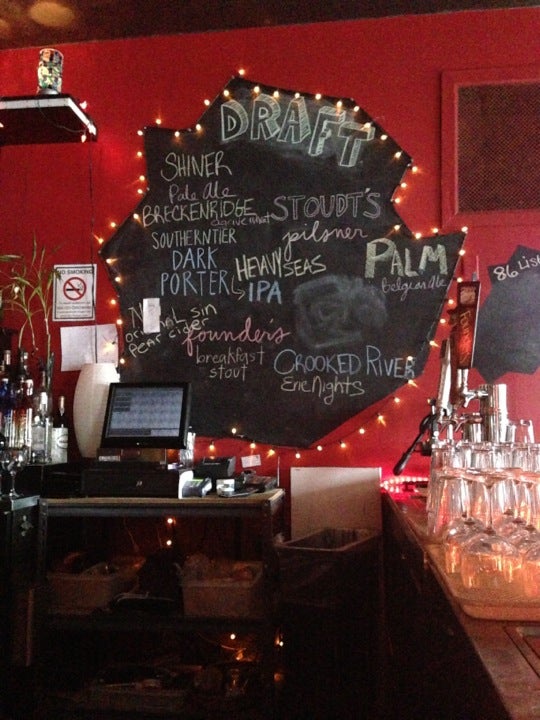 DRAFT
SHINER
Pale Ale
BRECKENRIDGE
STOUDT'S
pilsner
SOUTHERNTIER
DARK
PORTER
HEAVY SEAS
IPA
PALM
belgian ale
original sin
pear cider
founder's
breakfast
stout
CROOKED RIVER
Erie Nights
86 List
NO SMOKING